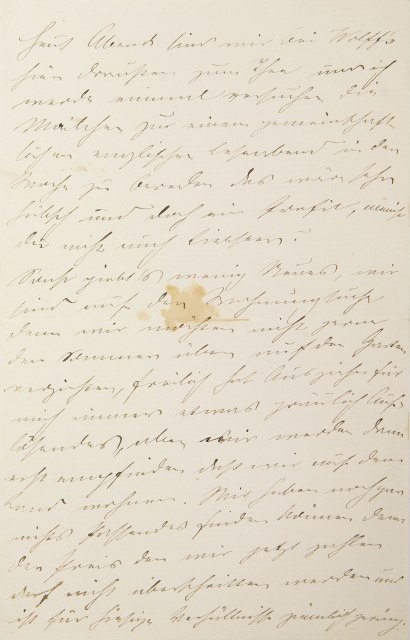 Heut Abend sind wir bei Wolff's
hier draußen zum Thee und ich
werde einmal versuchen die
Mädchen zu einem gemeinschaft
lichen englischen Leseabend in der
Woche zu bereden das wäre sehr
hübsch und doch ein Profit, meinst
du nicht auch Liebster?
Sonst giebt's wenig Neues, wir
sind auf der Wohnungssuche
denn wir möchten nicht gern
den Sommer über auf den Garten
verzichten, freilich hat Ausziehn für
mich immer etwas gräulich Auf-
lösendes, aber wir werden dann
erst empfinden daß wir auf dem
Land wohnen. Wir haben noch gar
nichts Passendes finden können denn
der Preis den wir jetzt zahlen
darf nicht überschritten werden und
ist für hiesige Verhältnisse ziemlich gering.